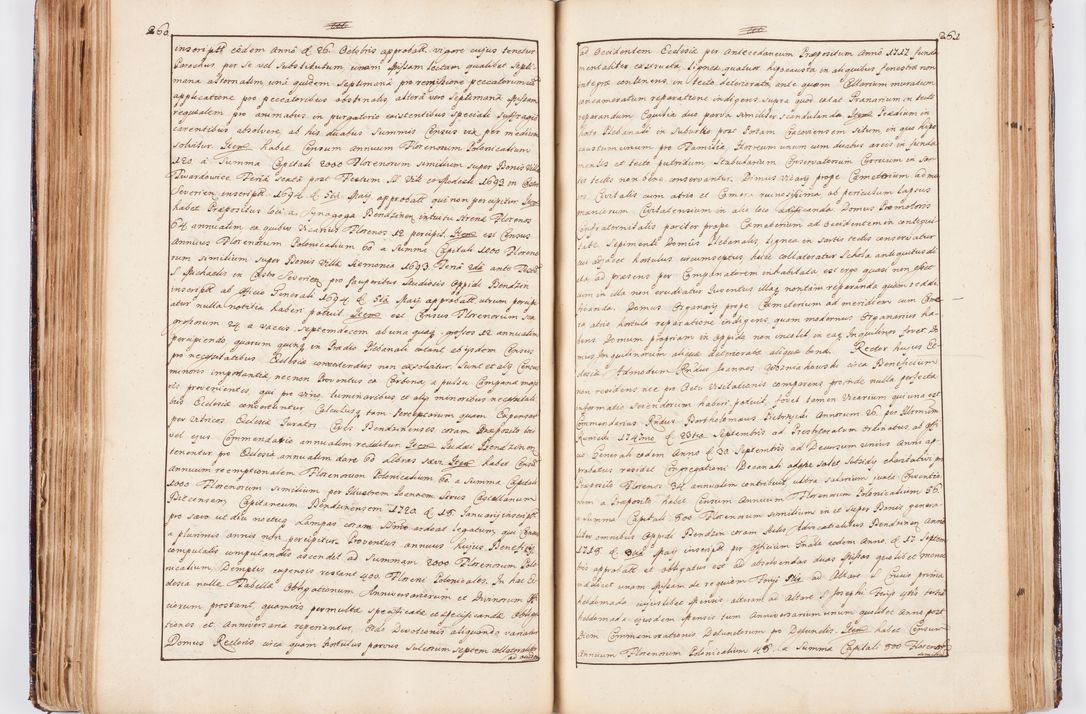 260
inscript eodem Anno d. 26. Octobris approbatt. vigore cujus tenetur
Parochus per se vel substitutum unam Missam lectam qualibet Septi-
mana alternatim una quidem Septimana pro remissione peccatorum cum
applicatione pro peccatoribus obstinatis, altera vero Septimana Missam
requialem pro animabus in purgatorio existentibus speciali suffragio
carentibus absolvere, ab his duabus Summis Census via per medium
solvitur. Item habet Censum annuum Florenorum Polonicalium
120 a Summa Capitali 2000 Florenorum similium super Bonis Villæ
Twardowice Feria sexta post Festum S. Viti et Modesti 1693 in Castro
Severien inscriptt. 1694 d. 5ta Maij approbatt qui non percipitur. Item
habet Præpositus loci a Synagoga Bendzinen intuitu Strenæ Florenos
64 annuatim ex quibus Vicarius Florenos 12 percipit. Item est Census
Annuus Florenorum Polonicalium 60 a Summa Capitali 1000 Floreno-
rum similium super Bonis Villæ Siemonia 1693 Feria 2da ante Festum
S. Michaelis in Castro Severien pro Pauperibus Studiosis Oppidi Bendzin
inscriptt ab Officio Generali 1694 d. 5ta Maij approbatt, utrum percipi
atur nulla notitia haberi potuit. Item est Census Florenorum sex
grossorum 24 a vaccis Septemdecem ab una quaq. grossos 12 annuatim
percipiendo quarum quinq in Prædio Plebanali extant ab ijsdem Census
pro necessitatibus Ecclesiæ convertendus non exolvitur. Sunt et alij Census
minoris importantiæ, necnon Proventus ex Carbona, a pulsu Campanæ majo-
ris provenientes, qui pro vino, luminaribus et alijs minoribus necessitati-
bus Ecclesiæ convertuntur. Calculusq tam Perceptorum quam Expensar
per Vitricos Ecclesiæ Juratos Cives Bendzinenses coram Præposito loci
vel ejus Commendario annuatim redditur. Item Judæi Bendzinen
tenentur pro Ecclesia annuatim dare 60 libras sævi. Item habet Censum
annuum reemptionalem Florenorum Polonicalium 60 a Summa Capitali
1000 Florenorum similium per Illustrem Joannem Castellanum
Biecensem Capitaneum Bendzinensem 1720 d. 15 Januarij inscriptt
pro sævo ut diu noctuq Lampas coram SSmo ardeat legatum, qui Census
a plurimis annis non percipitur. Proventus annuus hujus Beneficij
computatis computandis ascendit ad Summam 2000 Florenorum Polo-
nicalium, Demptis expensis restant 400 Floreni Polonicales. In hac Ec-
clesia nulla Tabella Obligationum Anniversariorum et Divinorum Offi-
ciorum prostant, quamvis permulta specificata et specificanda Obliga-
tiones et Anniversaria reperiantur. Ordo Devotionis aliquando variatur
Domus Rectoris circa quam hortulus parvus sulcorum septem collateralis
ad occiden
261
ad Occidentem Ecclesiæ per Antecedaneum Præpositum Anno 1717 funda-
mentaliter exstructa, lignea, quatuor hypocausta in aliquibus fenestris non
integris continens, in tecto deteriorata ante quam Cellarium muratum
concameratum reparatione indigens, supra quod extat Granarium in tecto
reparandum. Equilia duo parva similiter scandulanda. Item Prædium in
horto Plebanali in Suburbio post Portam Cracoviensem situm in quo hypo-
caustum unum pro Familia, Horreum unum cum duabus areis in funda-
mentis et tecto putridum Stabularium Conservatorium Cerevium in sar-
tis tectis non bene conservantur. Domus Vicarij prope Cæmeterium ad mu-
rum Civitalis cum atrio et Camera ruinosissima ob periculum lapsus
mænerum Civitatensium in alio loco ædificanda. Domus Promotoris
Confraternitatis pariter prope Cæmeterium ad Occidentem in contigui-
tate Sepimenti Domus Plebanalis, lignea in sartis tectis conservatur
cui adjacet hortulus circumseptus, huic collateratur Schola antiquitus de-
da ad præsens per Campanatorem inhabitata est ergo quasi non esset
cum in illa non erudiatur Juventus illaq nontam reparanda quam readi-
ficanda. Domus Organarij prope Cæmeterium ad meridiem cum Came-
ra atrio hortulo reparatione indigens, quam modernus Organarius ha-
bens Domum propriam in oppido non incolit, in eaq Inquilinos fovet. Do-
mus Inquilinorum aliqua deteriorata aliqua bona. Rector hujus Ec-
clesiæ Admodum Rndus Joannes Wozniakowski circa Beneficium
non residens, nec pro Actu Visitationis comparens, proinde nulla perfecta
informatio sciendorum haberi potuit, fovet tamen Vicarium qui una est
Commendarius Rndus Bartholomæus Piebrzycki Annorum 26. per Illmum
Kumedi 1747mo d. 23tia Septembris ad Presbyteratum ordinatus, ab Offi-
cio Generali eodem Anno d. 30 Septembris ad Decursum unius Anni ap-
probatus residet Congregationi Decanali adesse solet, Subsidy charitativi pro
Præposito Florenos 34 annuatim contribuit, ultra salarium juxta Conventio-
nem a Præposito habet Censum Annuum Florenorum Polonicalium 56.
a Summa Capitali 800 Florenorum similium in et super Bonis genera-
liter omnibus Oppidi Bendzin coram Actis Advocatialibus Bendzinen Anno
1715 d. 3tia Maij inscriptt per Officium Pnale eodem Anno d. 17 Septem-
bris approbatt et obligatus est ad absolvendas duas Missas qualibet mense
videlicet unam Missam de requiem Feria 2da ad Altare S. Crucis prima
hebdomada cujuslibet Mensis, alteram ad Altare S. Josephi Feria 4ta tertia
hebdomada ejusdem Mensis tum Anniversarium unum quolibet Anno post
Diem Commemorationis Defunctorum pro Defunctis. Item habet Censum
Annuum Florenorum Polonicalium 45. a Summa Capitali 800 Florenor
similium